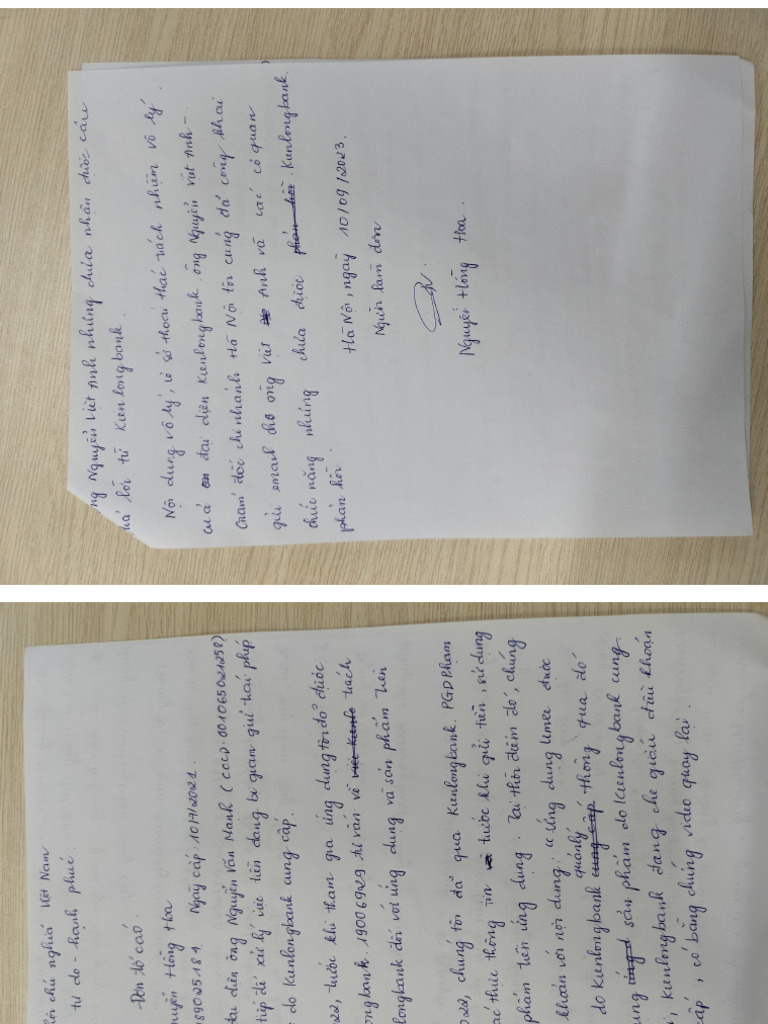 ng Nguyễn Việt Anh nhưng chưa nhận được câu
lỗi từ Kienlongbank.
Nội dung vô lý, lẽ số thoái thác trách nhiệm vô lý.
của đại diện Kienlongbank. ông Nguyễn Việt Anh -
Giám đốc chi nhánh Hà Nội tôi cũng đã công khai
gửi email cho ông Việt Anh và các cơ quan
chức năng nhưng chưa được phản hồi. Kienlongbank.
phản hồi.
Hà Nội, ngày 10/09/2023.
Người làm đơn
Nguyễn Hồng Hoa
hội chủ nghĩa Việt Nam
tự do - hạnh phúc.
Đơn tố cáo.
guyễn Hồng Hoa
189025184. Ngày cấp: 10/7/2021.
đại diện ông Nguyễn Văn Mạnh (CCCD: 001065021258)
tiếp để xử lý việc tiền đang bị gian giữ trái phép
do Kienlongbank cung cấp.
022, trước khi tham gia ứng dụng tôi đã được
ongbank. 19006929 tư vấn về việc trách
longbank đối với ứng dụng và sản phẩm trên
022, chúng tôi đã qua Kienlongbank. PGD Phạm
ác thực thông tin về trước khi gửi tiền, sử dụng
phẩm trên ứng dụng. Tại thời điểm đó, chúng
khoản với nội dung: "ứng dụng Umee được
quản lý
do Kienlongbank cung cấp thông qua đó
ung ứng sản phẩm do Kienlongbank cung
, Kienlongbank đang che giấu điều khoản
cấp, có bằng chứng video quay lại.